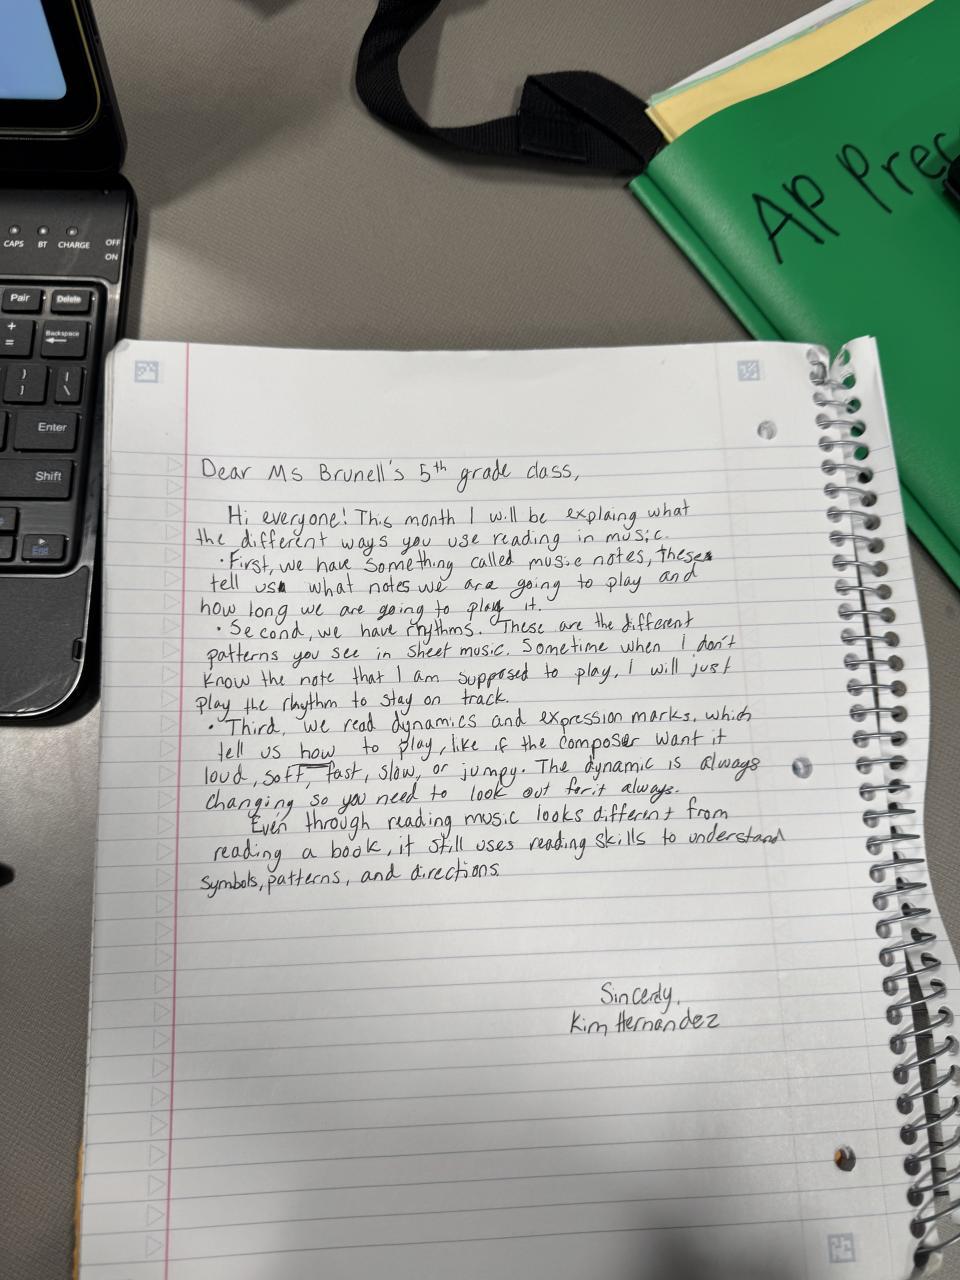 CAPS BT CHARGE OFF
ON
Pair Delete
+
= Backspace
}
] |
\
Enter
Shift
End
AP Prec
Dear Ms Brunell's 5th grade class,
Hi everyone! This month I will be explaing what
the different ways you use reading in music.
• First, we have something called music notes, these
tell us what notes we are going to play and
how long we are going to play it.
• Second, we have rhythms. These are the different
patterns you see in sheet music. Sometime when I don't
know the note that I am supposed to play, I will just
play the rhythm to stay on track.
• Third, we read dynamics and expression marks, which
tell us how to play, like if the composer want it
loud, soft, fast, slow, or jumpy. The dynamic is always
changing so you need to look out for it always.
Even through reading music looks different from
reading a book, it still uses reading skills to understand
symbols, patterns, and directions.
Sincerly,
Kim Hernandez